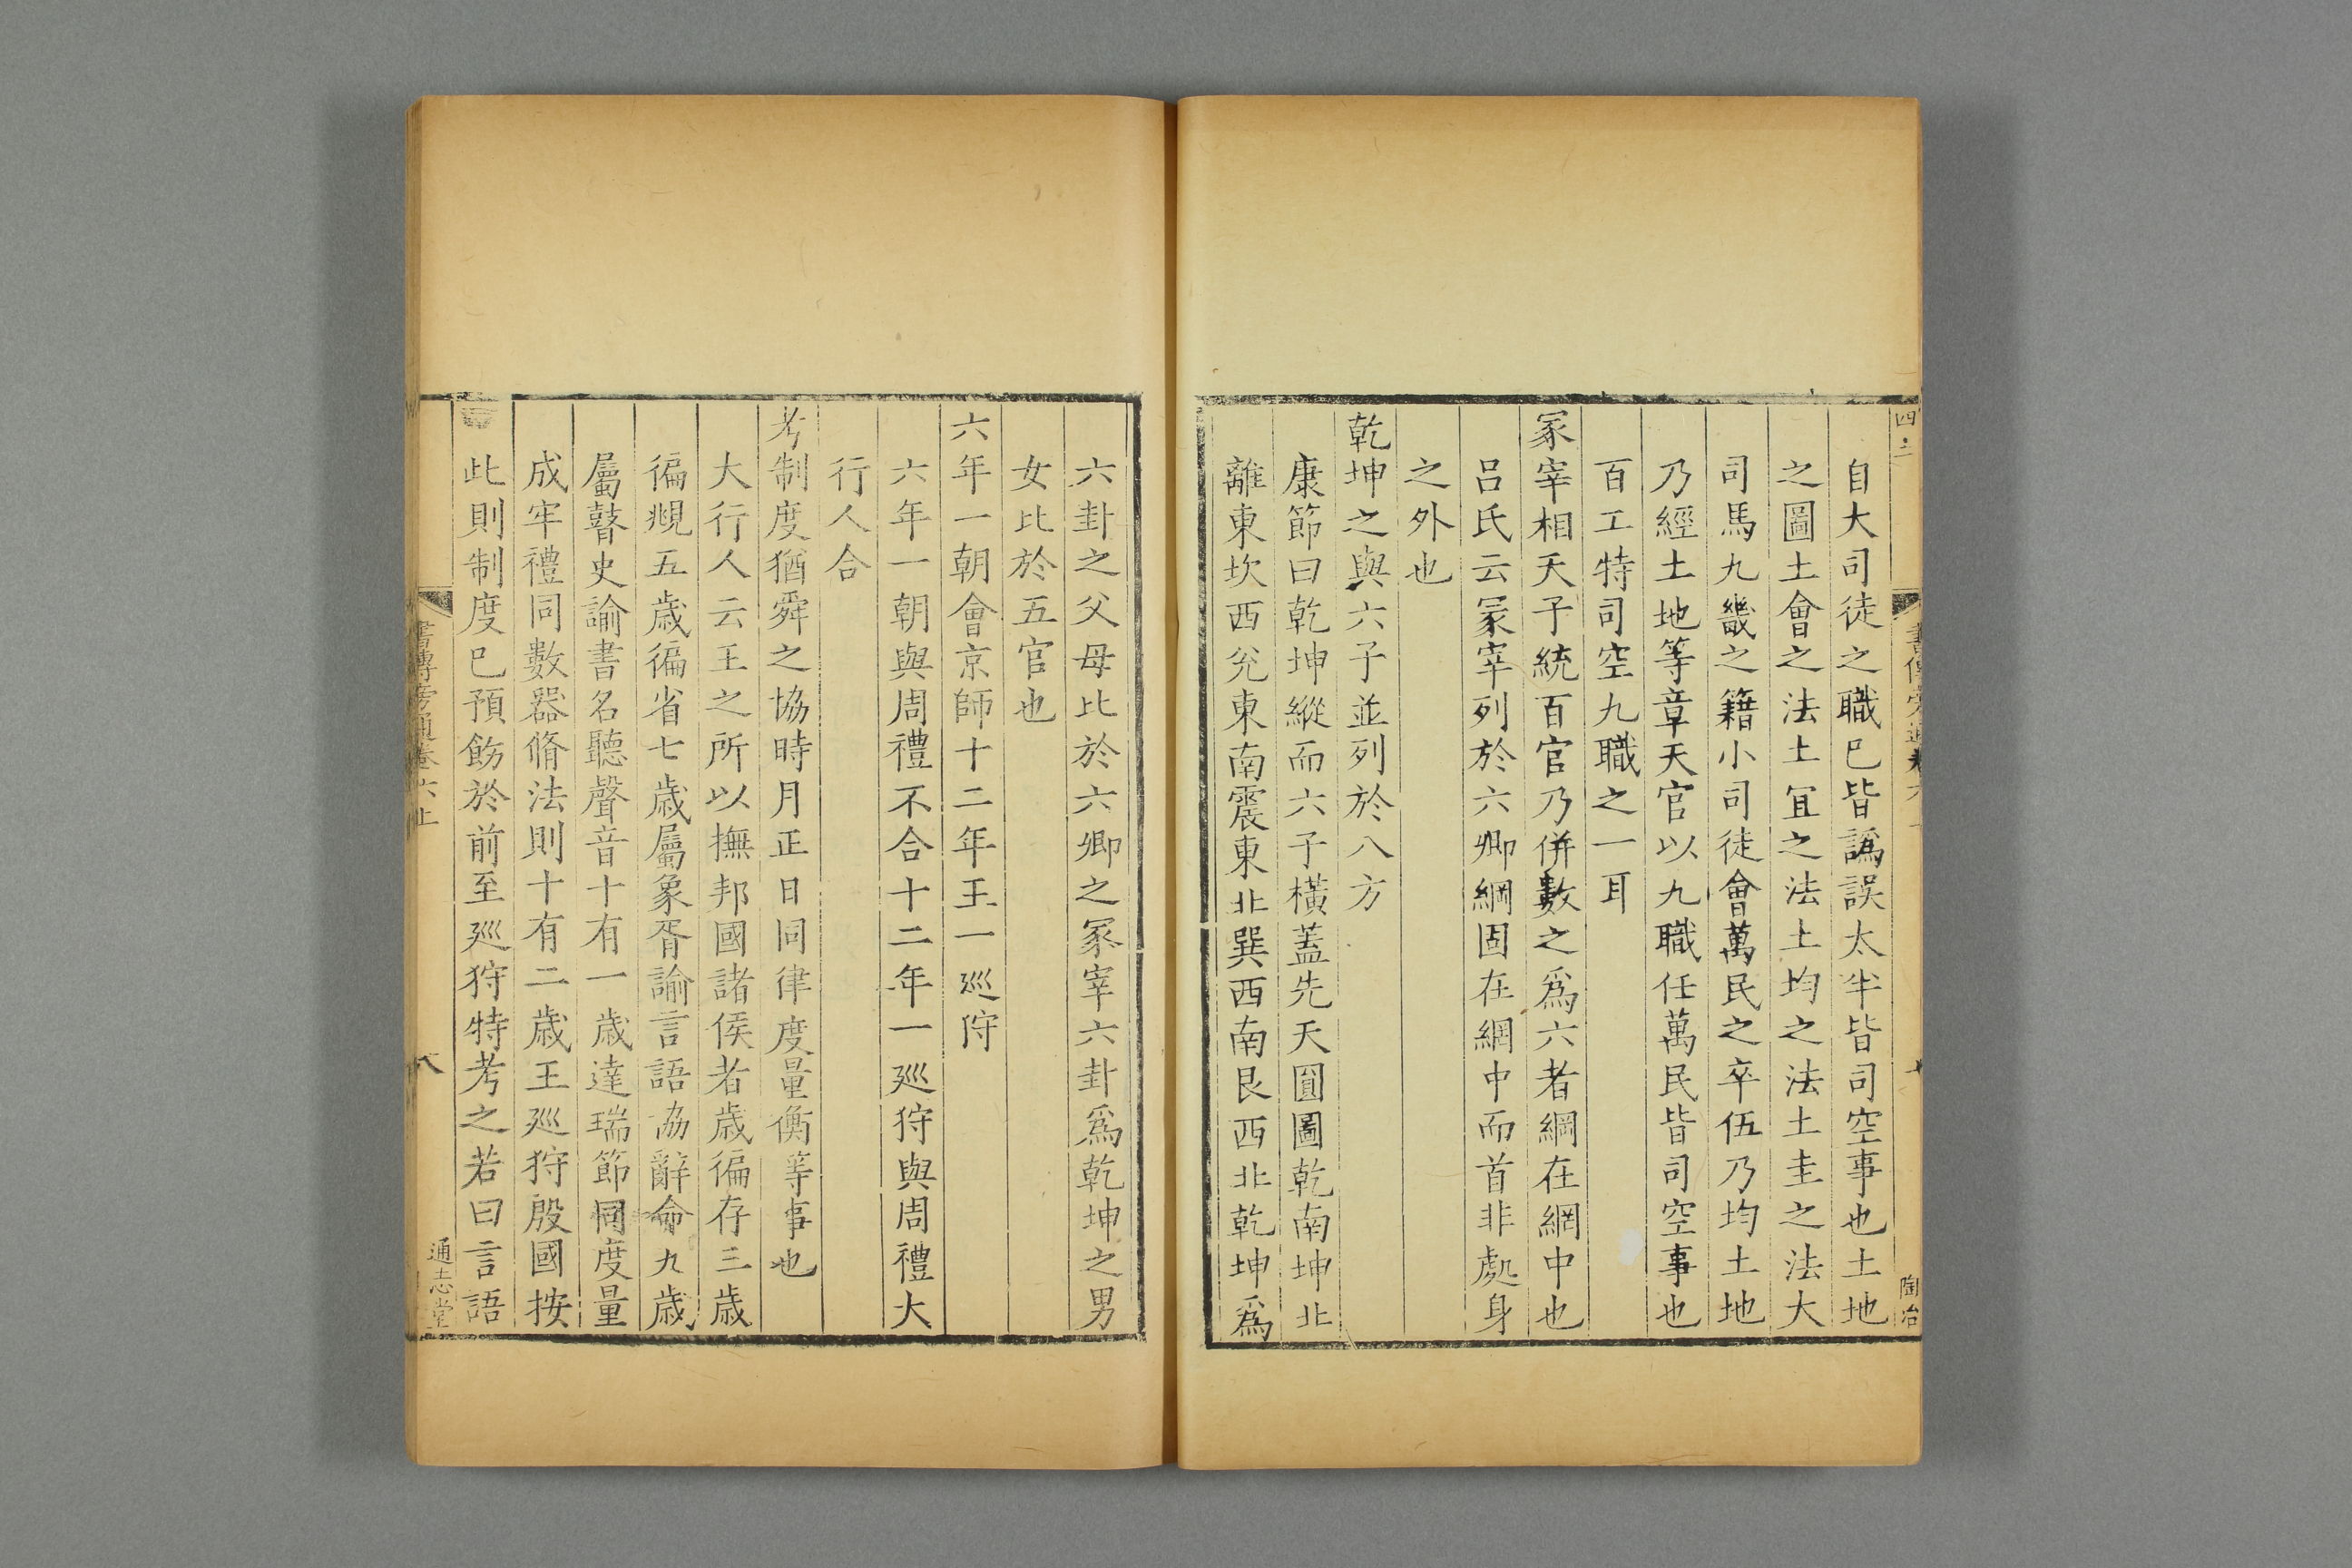 自大司徒之職已皆譌誤太半皆司空事也土地
之圖土會之法土宜之法土均之法土圭之法大
司馬九畿之籍小司徒會萬民之卒伍乃均土地
乃經土地等章天官以九職任萬民皆司空事也
百工特司空九職之一耳
冢宰相天子統百官乃併數之爲六者綱在網中也
呂氏云冢宰列於六卿綱固在網中而首非處身
之外也
乾坤之與六子並列於八方
康節曰乾坤縱而六子橫蓋先天圓圖乾南坤北
離東坎西兊東南震東北巽西南艮西北乾坤爲
六卦之父母比於六卿之冢宰六卦爲乾坤之男
女比於五官也
六年一朝會京師十二年王一廵狩
六年一朝與周禮不合十二年一廵狩與周禮大
行人合
考制度猶舜之協時月正日同律度量衡等事也
大行人云王之所以撫邦國諸侯者歲徧存三歲
徧覜五歲徧省七歲屬象胥諭言語協辭命九歲
屬瞽史諭書名聽聲音十有一歲達瑞節同度量
成牢禮同數器脩法則十有二歲王廵狩殷國按
此則制度已預飭於前至廵狩特考之若曰言語
書傳旁通卷六上
八
通志堂
陶冶